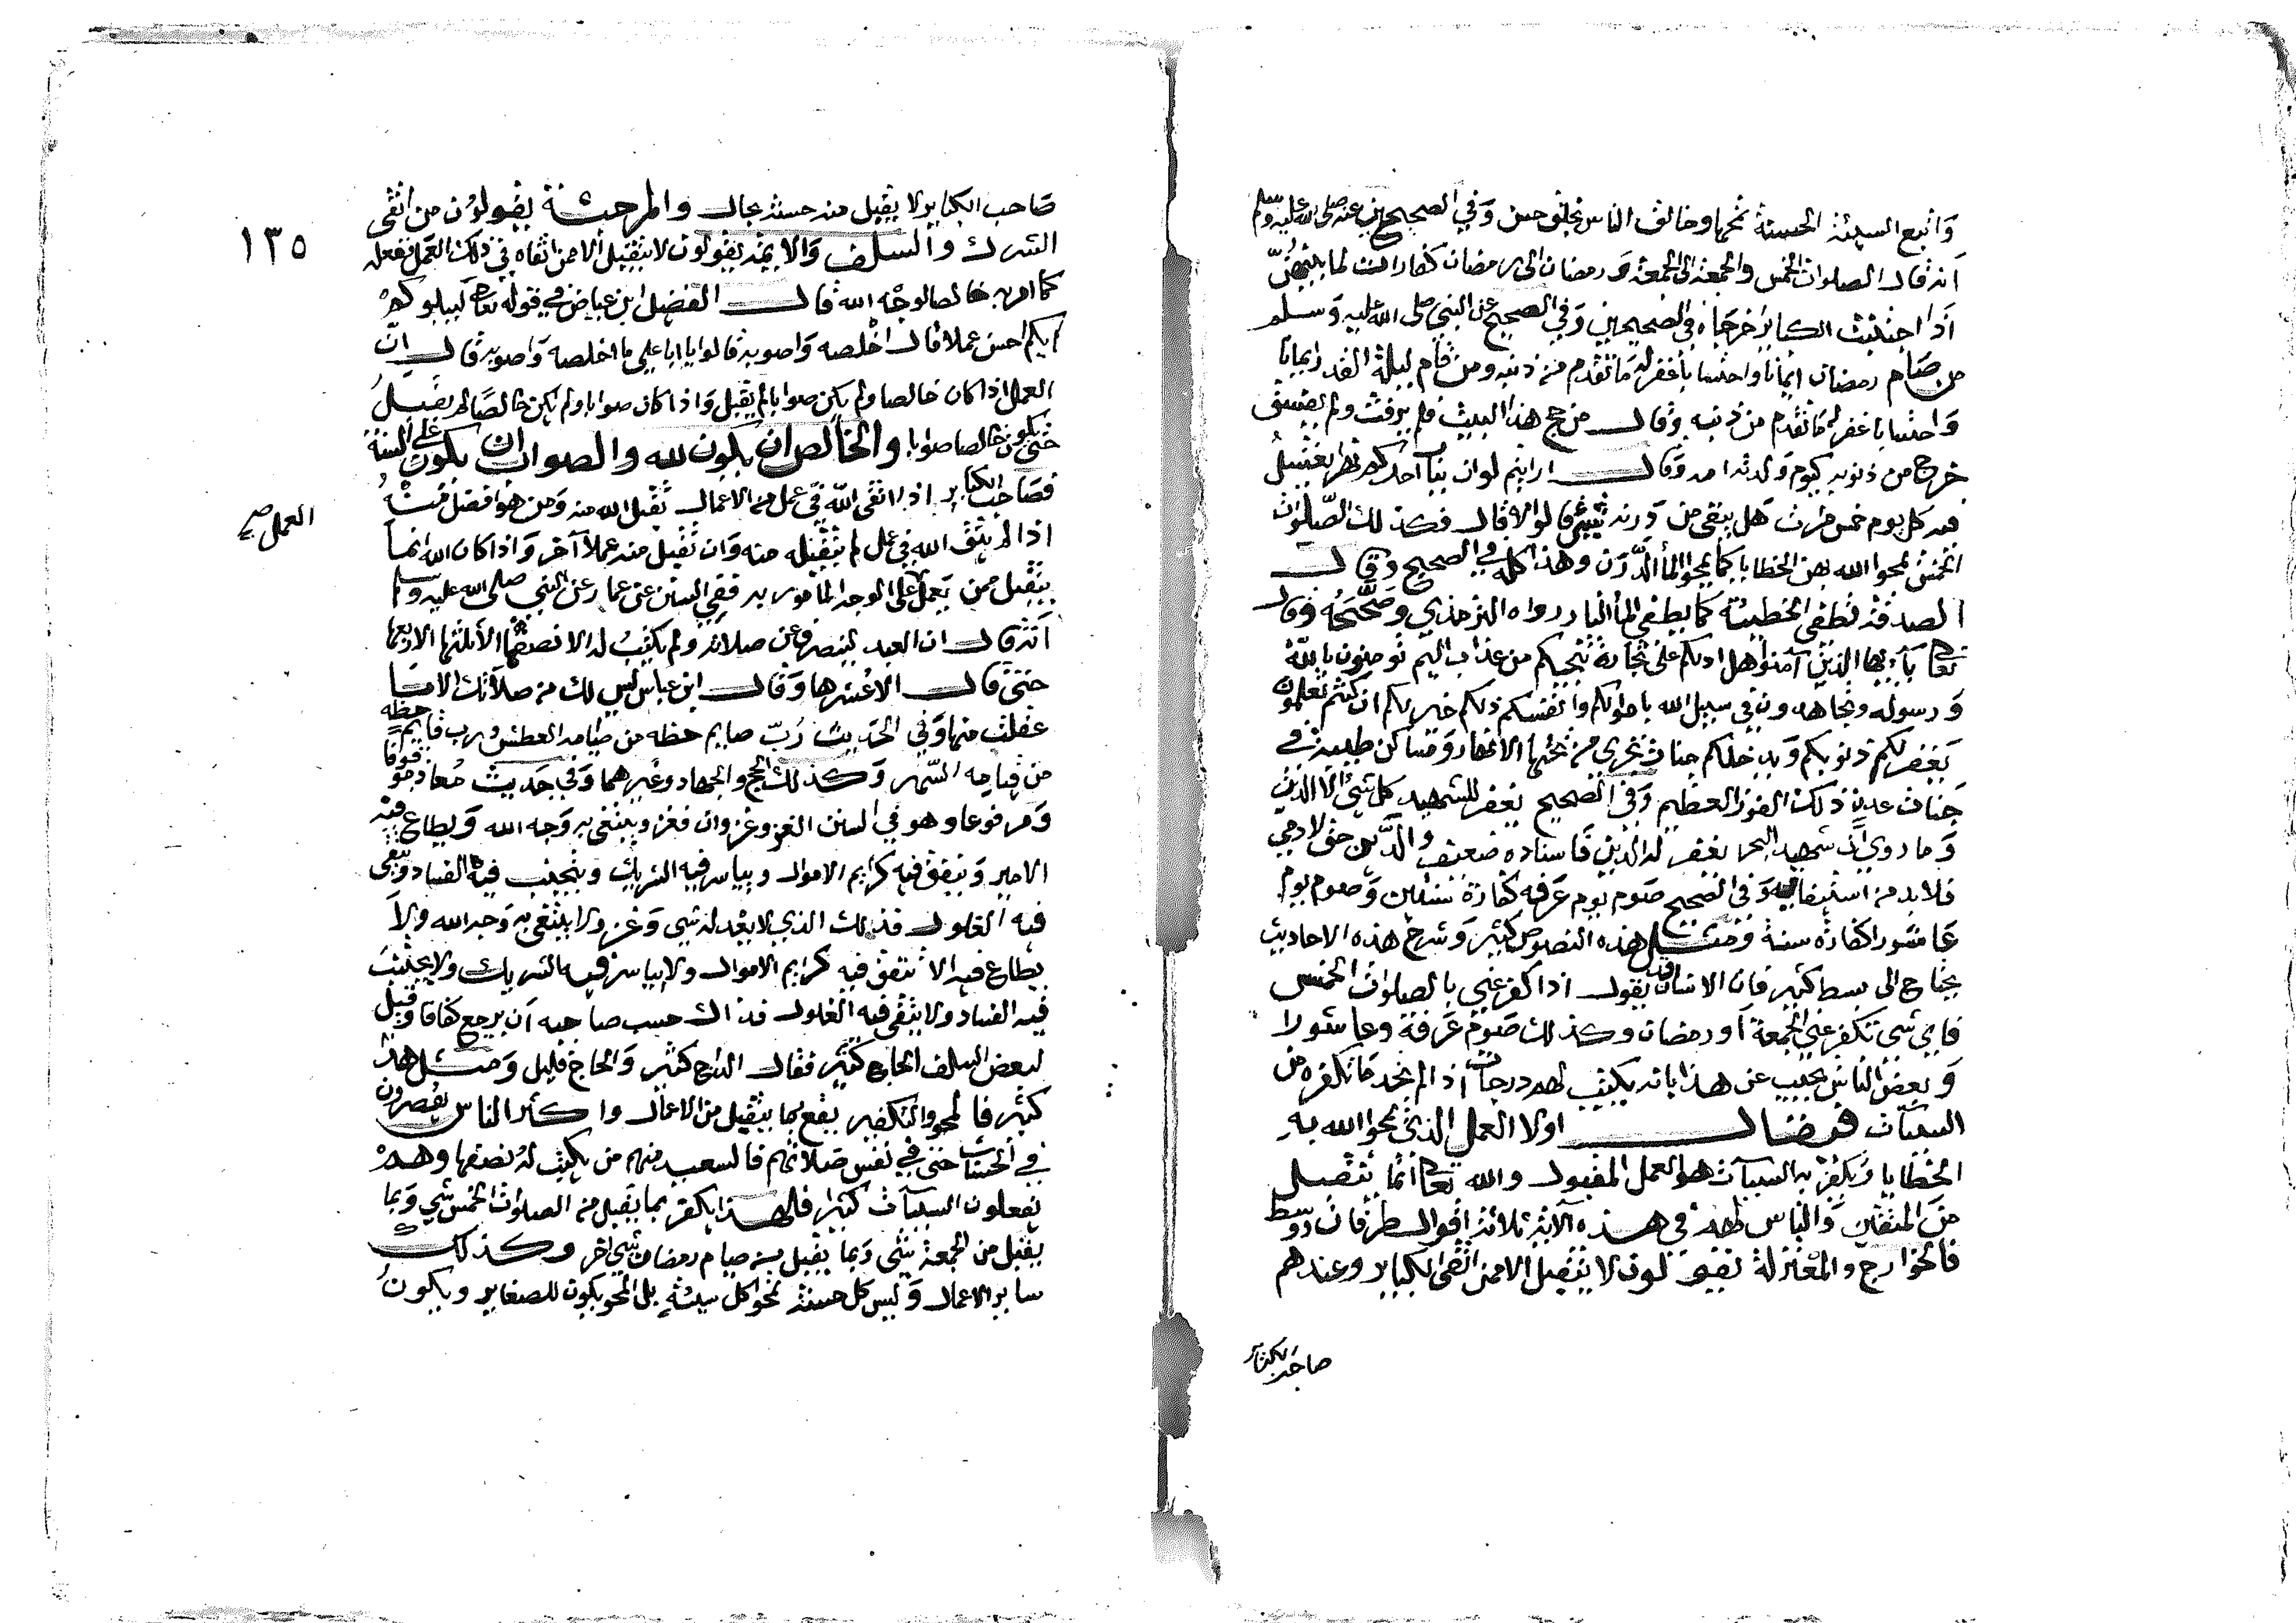 وَاتبع السيئة الحسنة تمحها وخالق الناس بخلق حسن وَفي الصحيحين عنه صلى الله عليه وسلم
أنه قال الصلوات الخمس والجمعة الى الجمعة وَرمضان الى رمضان كفارات لما بينهنّ
أذا اجتنبت الكبائر اخرجاه في الصحيحين وَفي الصحيح عن النبي صلى الله عليه وَسلم
من صَام رمضان ايمانا واحتسابا غفر له مَا تقدم من ذنبه ومن قام ليلة القدر ايمانا
وَاحتسابا غفر له مَا تقدم من ذنبه وَقال من حج هذا البيت فلم يرفث ولم يفسق
خرج من ذنوبه كيوم وَلدته امه وَقال ارايتم لوان بباب احدكم نهرا يغتسل
فيه كل يوم خمس مرات هَل يبقى من دَرنه شي قالوا لا قال فكذلك الصّلوات
الخمس يمحوا الله بهن الخطايا كما يمحوا الماُ الدَّرَن وهذا كله في الصحيح وَقال
الصدقة تطفي الخطيئة كما يطفي الماُ النار رواه الترمذي وصَحَّحَهُ وَقال
تعالى يَا أيها الذين آمنوا هل ادلكم على تجارة تنجيكم من عذاب اليم تؤمنون بالله
وَرسوله وتجاهدون في سبيل الله باموالكم وانفسكم ذلكم خير لكم ان كنتم تعلمون
يَغفر لكم ذنوبكم وَيدخلكم جنات تجري من تحتها الانهار وَمساكن طيبة في
جَنات عدن ذلك الفوز العظيم وَفي الصحيح يغفر للشهيد كل شي الا الدين
وَما روي أنّ شهيد البحر يغفر له الدين فَاسناده ضعيف والدَّين حق لادمي
فلابد من استيفائيه وَفي الصحيح صَوم يوم عَرفه كفارة سنتين وَصوم يوم
عَاشورا كفارة سنة وَمثل هذه النصوص كثير وَشرح هذه الاحاديث
يحتاج الى بسط كثير فان الانسان قد يقول اذا كفر عني بالصلوات الخمس
فاي شي تكفر عني الجمعة أو رمضان وكذلك صَوم عَرفة وعاشورا
وَبعض الناس يجيب عن هذا بانه يكتب لهم درجات اذا لم تجد مَا تكفره من
السيئات فيقال اولا العمل الذي يمحوا الله به
الخطايا وَيكفر به السيئات هو العمل المقبول والله تعالى انما يتقبل
من المتقين وَالناس لهم في هذه الآية ثلاثة اقوال طرفان ووسط
فالخوارج والمعتزلة يقولون لا يتقبل الا ممن اتقى الكبائر وعندهم
صاحب الكبائر
١٣٥
صَاحب الكبائر لا يقبل منه حسنة بحال والمرجئة يقولون من اتقى
الشرك والسلف وَالائمة يقولون لا يتقبل الا ممن اتقاه في ذلك العمل ففعله
كما امر به خالصا لوجْه الله قال الفضيل ابن عياض في قوله تعالى ليبلوكم
ايكم احسن عملا قال اخلصه وَاصوبه قالوا يا ابا علي ما اخلصه وَاصوبه قال انّ
العمل اذا كان خالصا ولم يكن صوابا لم يقبل وَاذا كان صوابا ولم يكن خالصَا لم يقبل
حتى يكون خالصا صوابا والخالص ان يكون لله والصواب ان يكون على السنة
فصَاحب الكبائر اذا اتقى الله في عمل من الاعمال تقبل الله منه وَمن هو افضل منه
اذا لم يتق الله في عمل لم يتقبله منه وَان تقبل منه عملا آخر وَاذا كان الله انما
يتقبل ممن يَعمل على الوجه المامور به ففي السنن عن عمار عن النبي صلى الله عليه وسلم
العمل صح
أنه قال ان العبد لينصرف عن صلاته ولم يكتب له الا نصفها الا ثلثها الا ربعها
حتى قال الا عُشرها وَقال ابن عباس ليس لك من صلاتك الا مَا
عَقلت منها وَفي الحَديث رُبّ صايم حظه من صيامه العطش وَرب قايم حظه
من قيامه السّهر وَكذلك الحج والجهاد وغيرهما وَفي حَديث مُعاذ موقوفا
وَمرفوعا وهو في السنن الغزو غزوان فغزو يبتغى به وَجه الله وَيطاع فيه
الامير وَتنفق فيه كرايم الاموال ويياسر فيه الشريك ويجتنب فيه الفساد ويتقى
فيه الغلول فذلك الذي لا يعدله شي وَغزو لا يبتغى به وَجه الله ولا
يطاع فيه الا تنفق فيه كرايم الاموال ولا يياسر فيه الشريك ولا يجتنب
فيه الفساد ولا يتقى فيه الغلول فذاك حسب صاحبه أن يرجع كفافا وَقيل
لبعض السلف الحاج كثير فقال الداج كثير وَالحاج قليل وَمثل هذا
كثير فالمحو والتكفير يقع بما يتقبل من الاعمال واكثر الناس يقصرون
في الحسنات حتى في نفس صَلاتهم فالسعيد منهم من يكتب له نصفها وهم
يفعلون السيئات كثيرا فلهذا يكفر بما يقبل من الصلوات الخمس شي وَبما
يقبل من الجمعة شي وَبما يقبل من صيام رمضان شي اخر وكذلك
ساير الاعمال وَليس كل حسنة تمحوا كل سيئة بل المحو يكون للصغاير ويكون